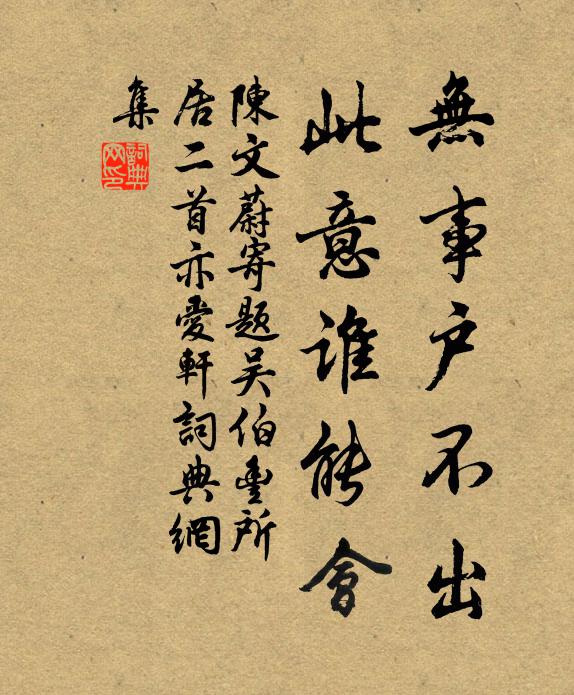 無事户不出
此意誰能會
陳文蔚寄題吴伯豐所
居二首亦愛軒詞典網
集
詞典网印